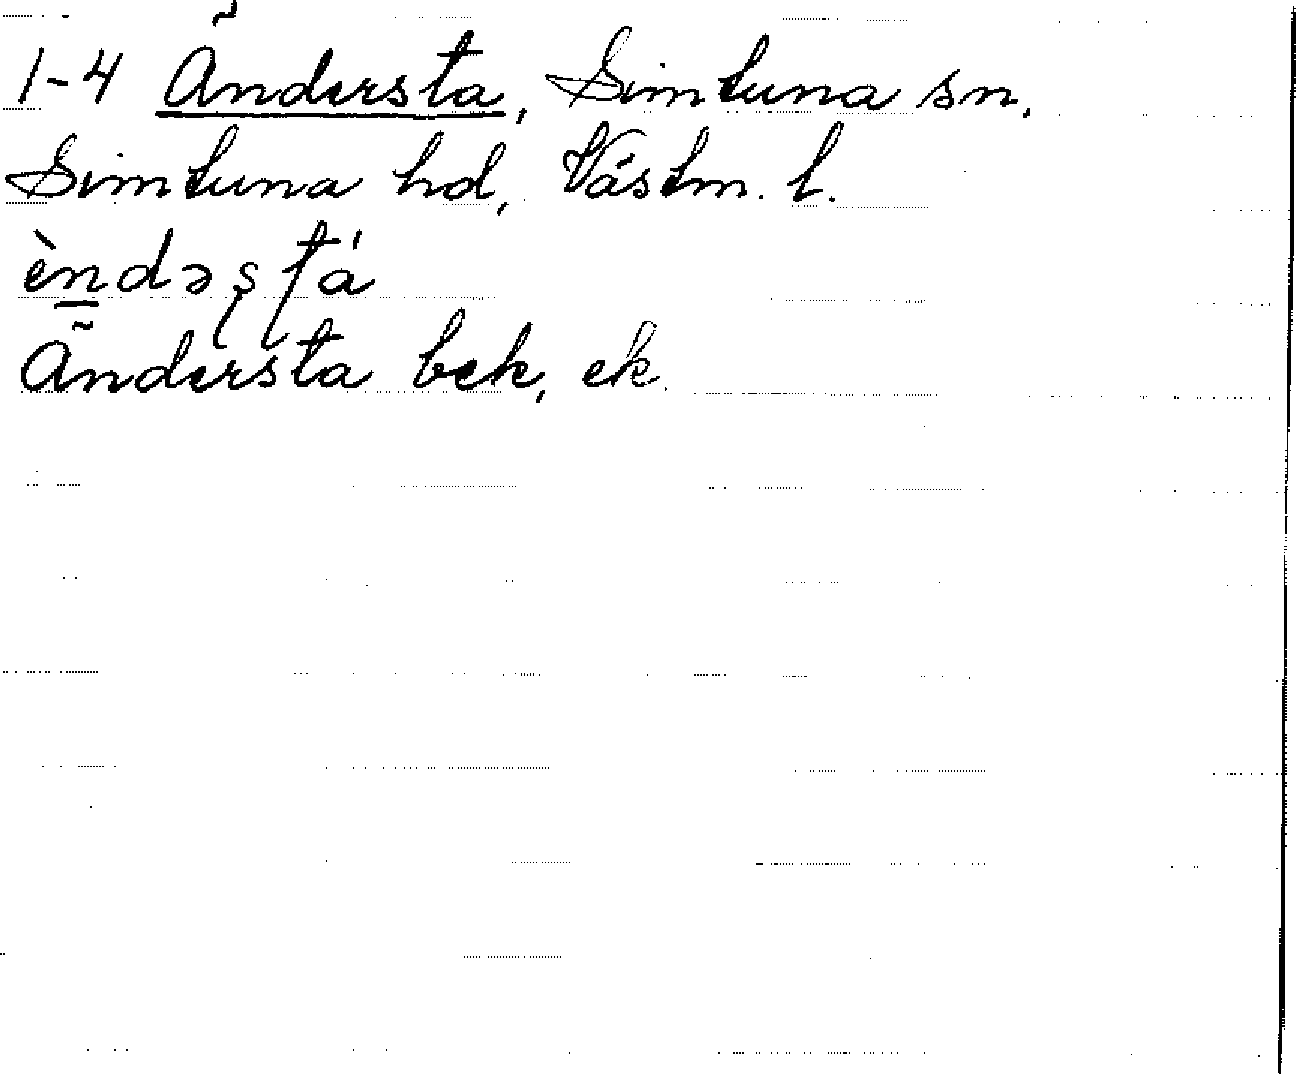 1-4 Ändersta, Simtuna sn,
Simtuna hd, Västm. l.
èndəʂʈá
Ändersta bek, ek.